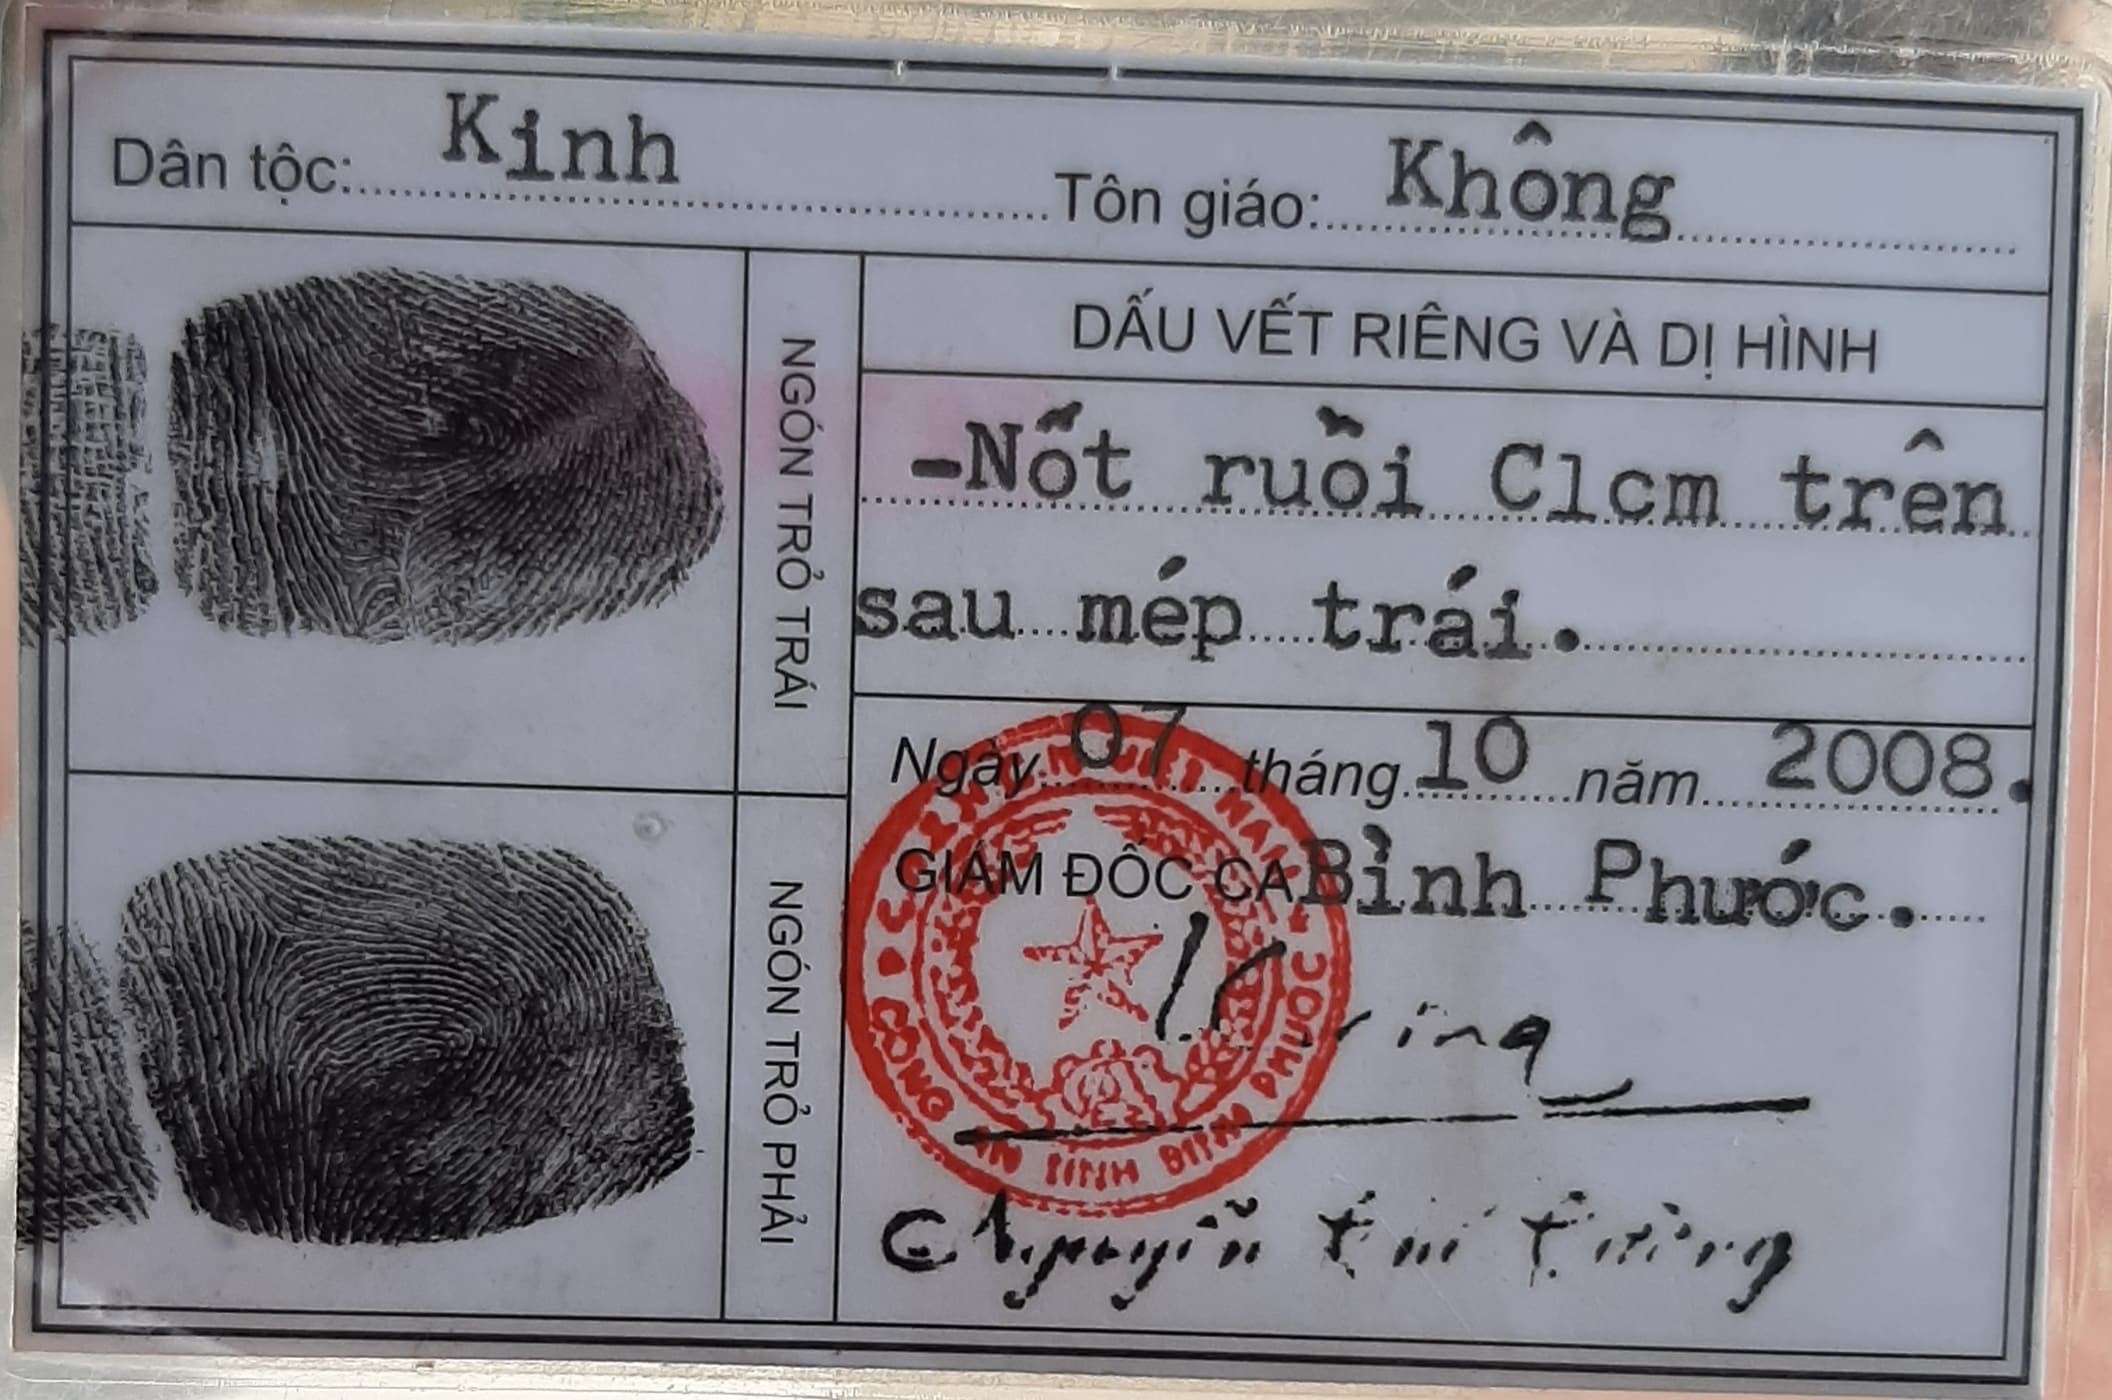 Dân tộc: Kinh Tôn giáo: Không
NGÓN TRỎ TRÁI
DẤU VẾT RIÊNG VÀ DỊ HÌNH
-Nốt ruồi C1cm trên
sau mép trái.
Ngày 07 tháng 10 năm 2008.
GIÁM ĐỐC CA Bình Phước.
NGÓN TRỎ PHẢI
CÔNG AN TỈNH BÌNH
Nguyễn